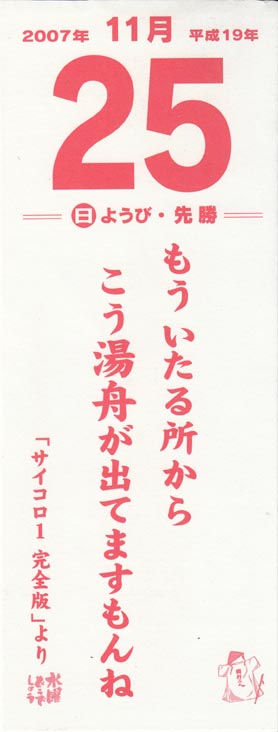 2007年 11月 平成19年
25
日 ようび・先勝
もういたる所から
こう湯舟が出てますもんね
「サイコロ1 完全版」より
水曜
どうで
しょう